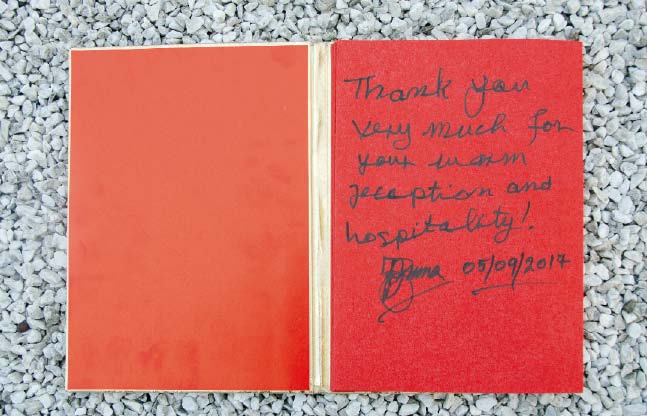 Thank you
very much for
your warm
reception and
hospitality!
05/09/2017